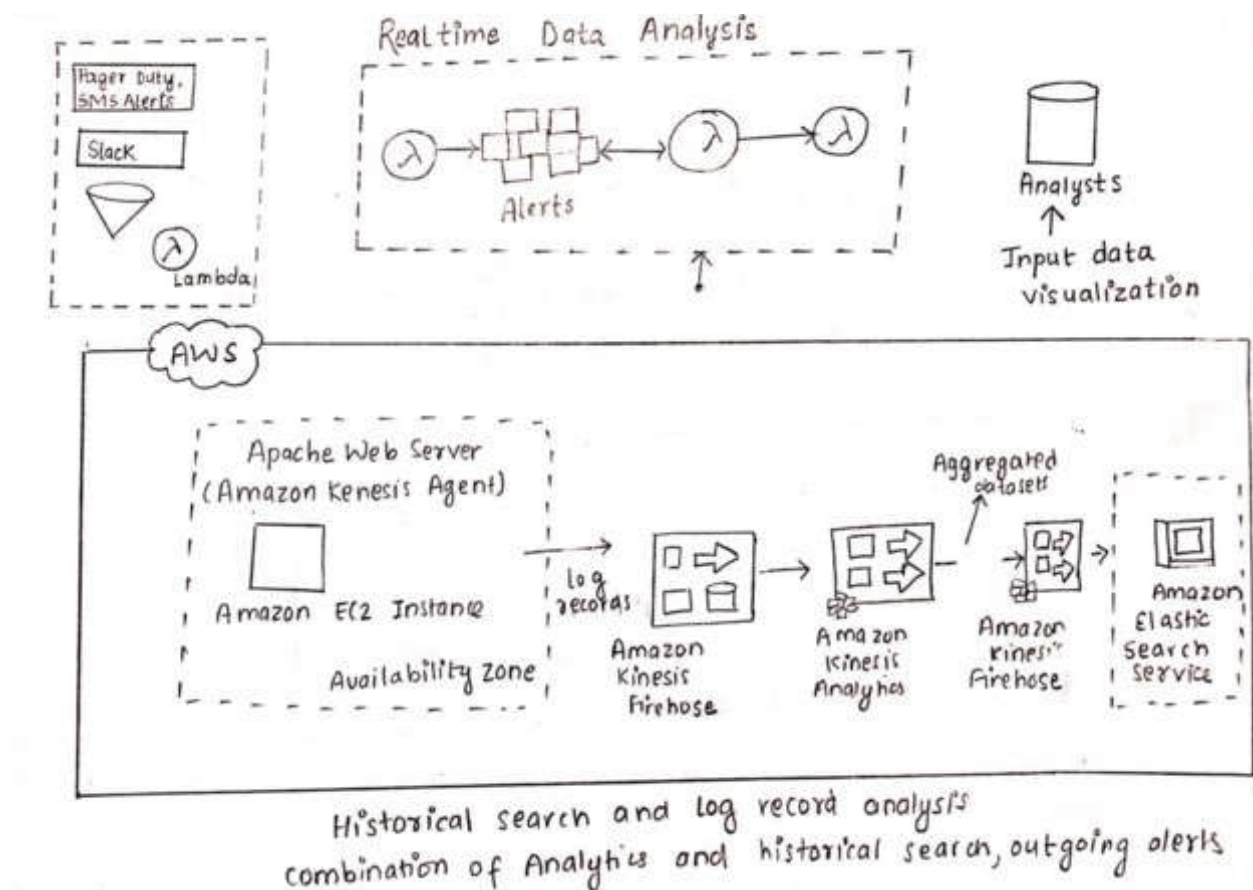 Realtime Data Analysis
Pager Duty,
SMS Alerts
Slack
λ
Lambda
λ
λ
λ
Alerts
Analysts
Input data
visualization
AWS
Apache Web Server
(Amazon Kenesis Agent)
Amazon EC2 Instance
Availability zone
Log
records
Amazon
Kinesis
Firehose
Amazon
Kinesis
Analytics
Aggregated
datasets
Amazon
Kinesis
Firehose
Amazon
Elastic
Search
Service
Historical search and log record analysis
combination of Analytics and historical search, outgoing alerts